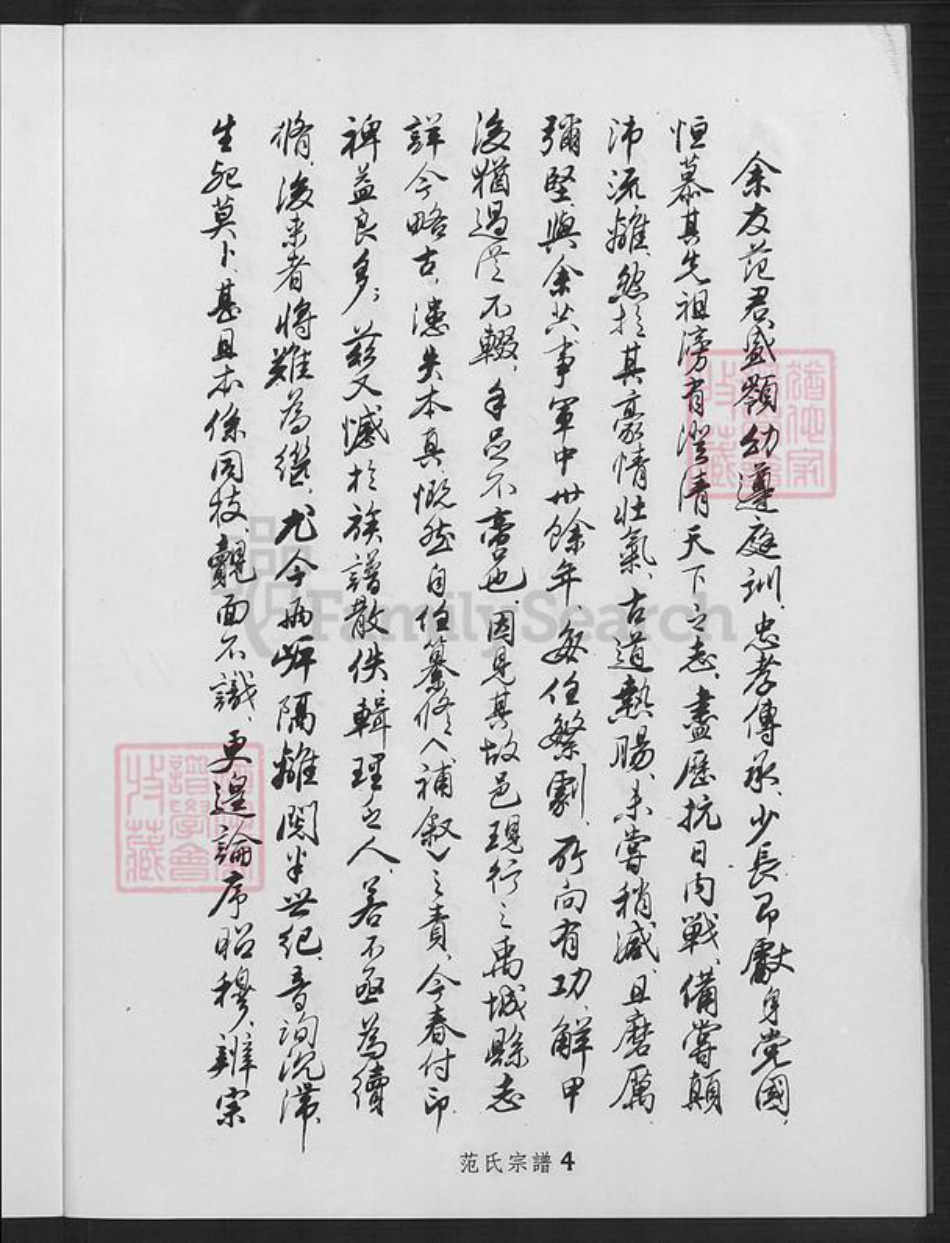 余友范君盛顎幼遵庭訓、忠孝傳承、少長即獻身党國、
恒慕其先祖滂有澄清天下之志、盡歷抗日內戰、備嘗顛
沛流離、然於其豪情壯氣、古道熱腸、未嘗稍減、且磨厲
彌堅、與余共事軍中卅餘年、每任繁劇、所向有功、解甲
後猶過從不輟、手足不啻也、因見其故邑現行之禹城縣志
詳今略古、憑失本真、慨然自任纂修（補敘）之責、今春付印、
裨益良多；茲又憾於族譜散佚、輯理乏人、若不亟為續
脩、後來者將難為繼、尤今兩岍隔離闊半世紀、音詢沉滯、
生死莫卜、甚且本係同枝、覿面不識、更遑論序昭穆、辨宗
范氏宗譜 4
譜學會
收藏
FamilySearch